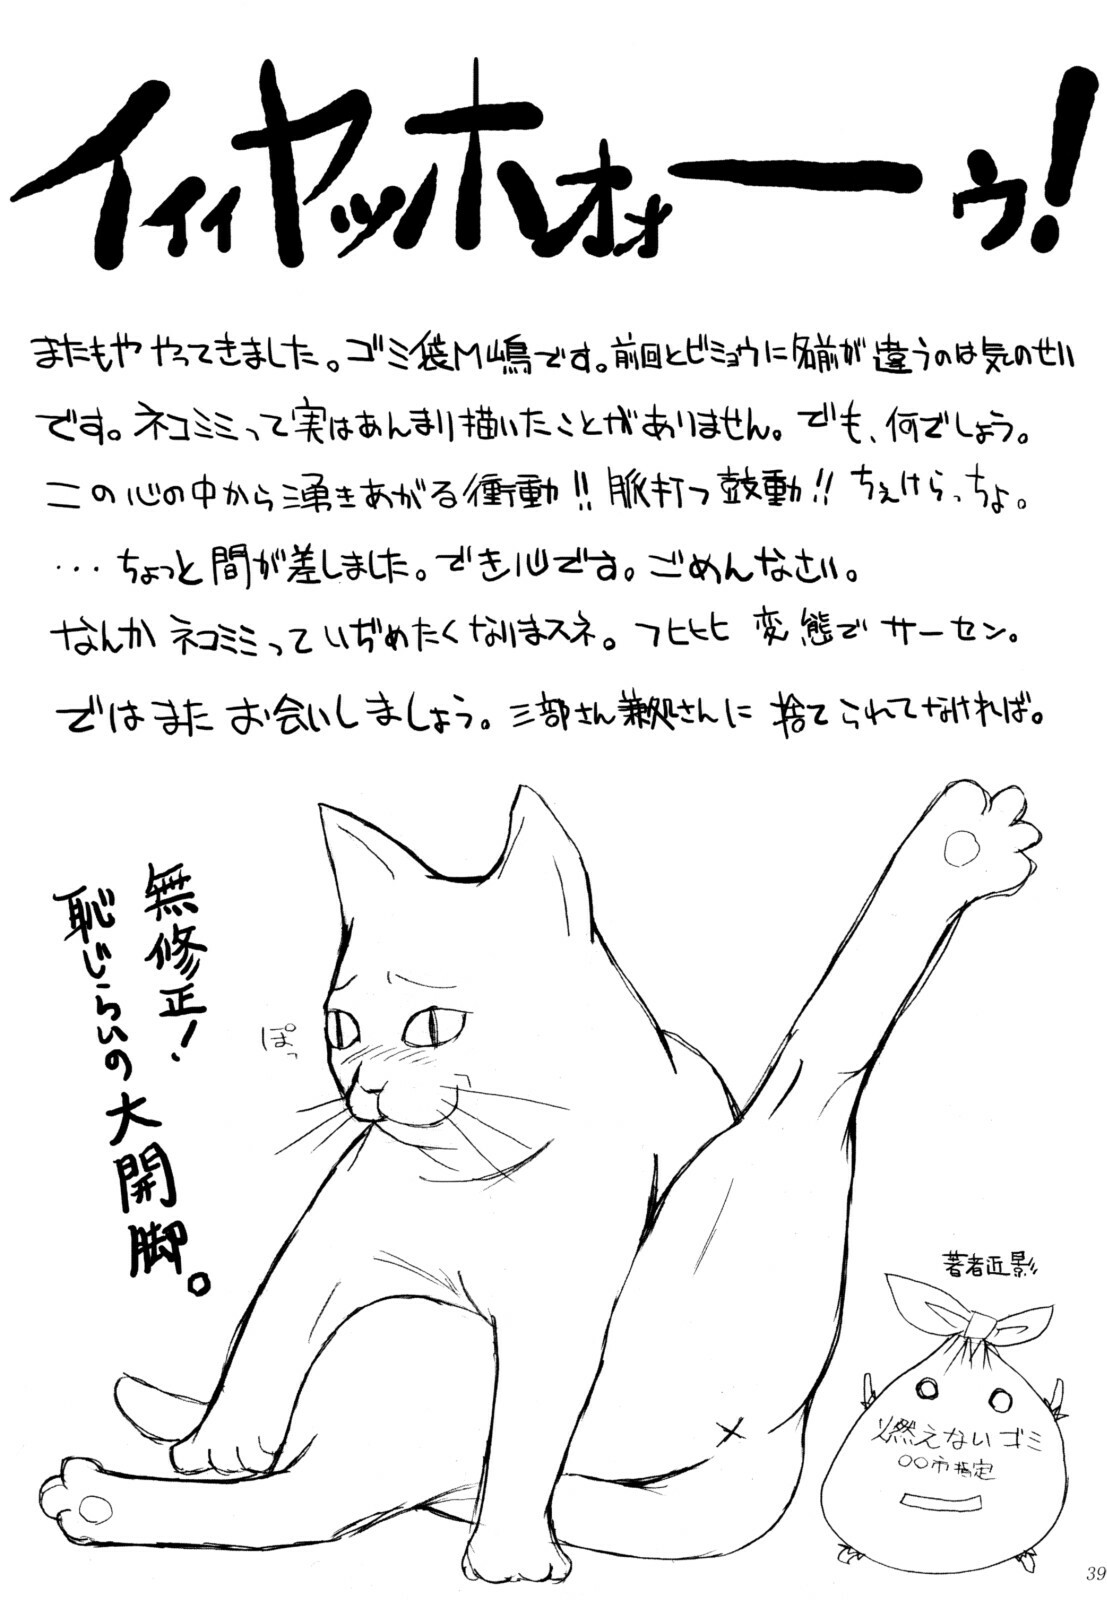 イィィヤッホォォォーーゥ！
またもや やってきました。ゴミ袋M嶋です。前回とビミョウに名前が違うのは気のせい
です。ネコミミって実はあんまり描いたことがありません。でも、何でしょう。
この心の中から湧きあがる衝動!! 脈打つ鼓動!! ちぇけらっちょ。
･･･ちょっと間が差しました。でき心です。ごめんなさい。
なんかネコミミっていぢめたくなりまスネ。フヒヒヒ 変態でサーセン。
ではまたお会いしましょう。三部さん兼処さんに捨てられてなければ。
無修正！
恥じらいの大開脚。
ぽっ
著者近影
燃えないゴミ
○○市指定
39